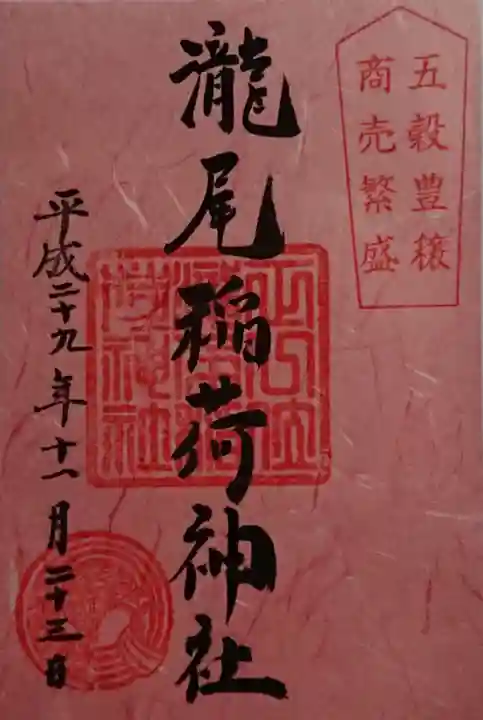 五穀豊穣
商売繁盛
瀧尾稲荷神社
平成二十九年十一月二十三日